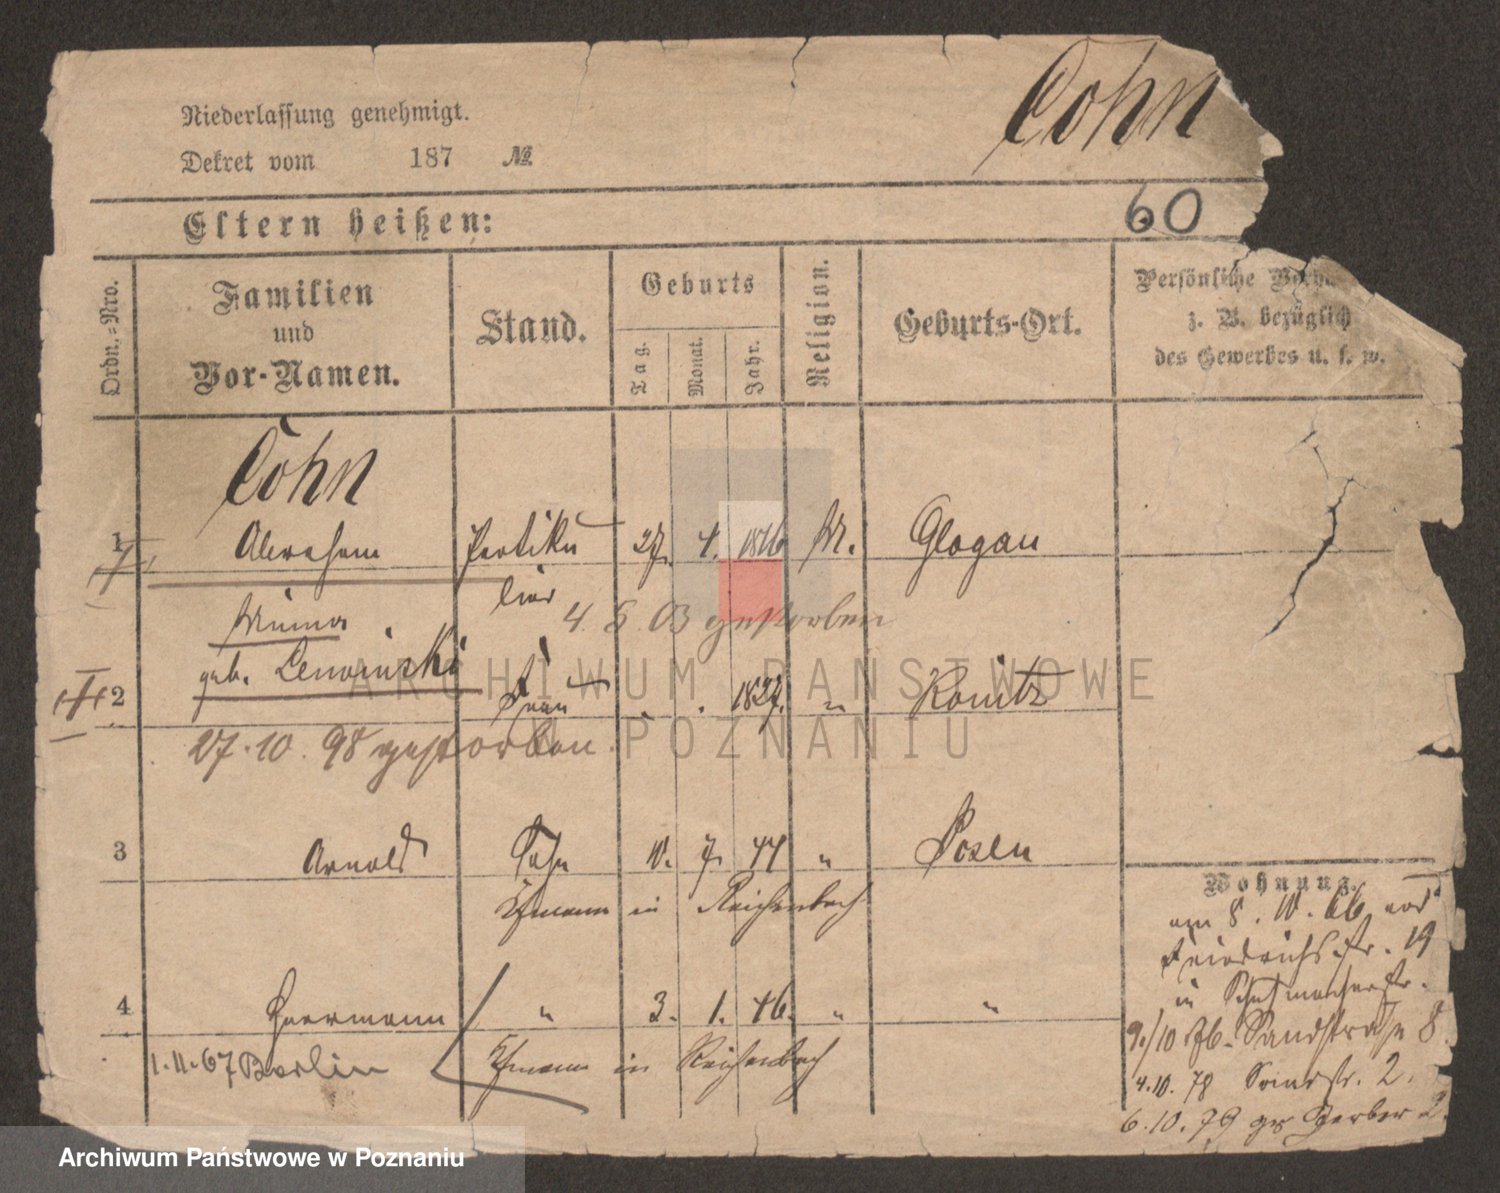 Niederlassung genehmigt.
Cohn
Dekret vom 187 №
Eltern heißen:
60
Ordn.-Nro.
Familien und Vor-Namen.
Stand.
Geburts
Tag.
Monat.
Jahr.
Religion.
Geburts-Ort.
Persönliche
z. B. bezüglich
des Gewerbes u. s. w.
Cohn
1 Abraham Partiku 27. 4. 1816 M. Glogau
lier
Minna 4. 5. 03 gestorben
geb. Lewinski
2 Frau 1827. " Konitz
27. 10. 98 gestorben.
3 Arnold Sohn 10. 7. 44 " Posen
Kfmann in Reichenbach
Wohnung.
am 8. 10. 66
Friedrichsstr. 19
in Schuhmacherstr.
4 Herrmann " 3. 1. 46. " "
9./10 Sandstraße 8.
1. 11. 67 Berlin Kfmann in Reichenbach
4. 10. 78 2.
6. 10. 79 Gerber 2.
ARCHIWUM PAŃSTWOWE
W POZNANIU
Archiwum Państwowe w Poznaniu